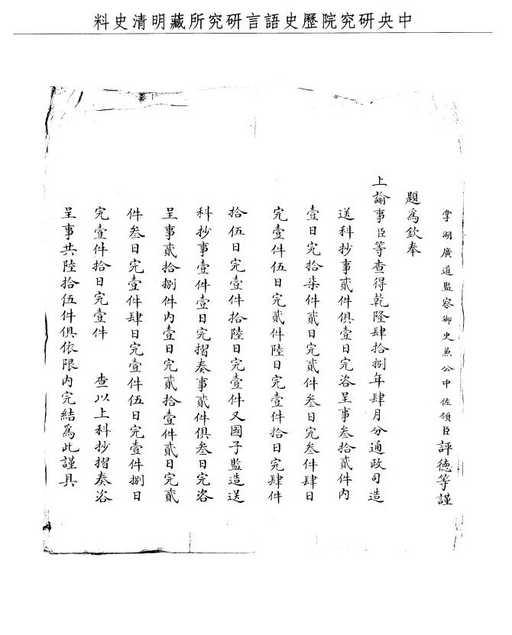 中央研究院歷史語言研究所藏明清史料
掌湖廣道監察御史兼公中佐領臣評德等謹
題為欽奉
上諭事臣等查得乾隆肆拾捌年肆月分通政司造
送科抄事貳件俱壹日完咨呈事叁拾貳件內
壹日完拾柒件貳日完貳件叁日完叁件肆日
完壹件伍日完貳件陸日完壹件拾日完肆件
拾伍日完壹件拾陸日完壹件又國子監造送
科抄事壹件壹日完摺奏事貳件俱叁日完咨
呈事貳拾捌件內壹日完貳拾壹件貳日完貳
件叁日完壹件肆日完壹件伍日完壹件捌日
完壹件拾日完壹件 查以上科抄摺奏咨
呈事共陸拾伍件俱依限內完結為此謹具